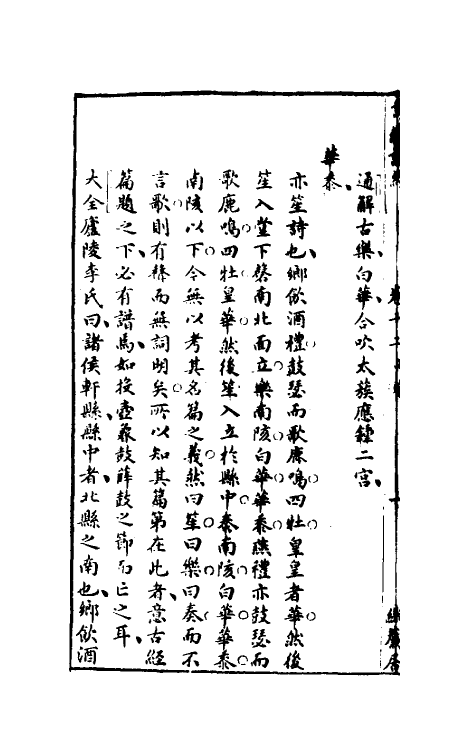 通解古樂白華合吹太簇應鐘二宮
華黍
亦笙詩也鄉飲酒禮鼓瑟而歌鹿鳴四牡皇皇者華然後
笙入堂下磬南北面立樂南陔白華華黍燕禮亦鼓瑟而
歌鹿鳴四牡皇華然後笙入立於縣中奏南陔白華華黍
南陔以下今無以考其名篇之義然曰笙曰樂曰奏而不
言歌則有聲而無詞明矣所以知其篇第在此者意古經
篇題之下必有譜焉如投壺魯鼓薛鼓之節而亡之耳
大全廬陵李氏曰諸侯軒縣縣中者北縣之南也鄉飲酒